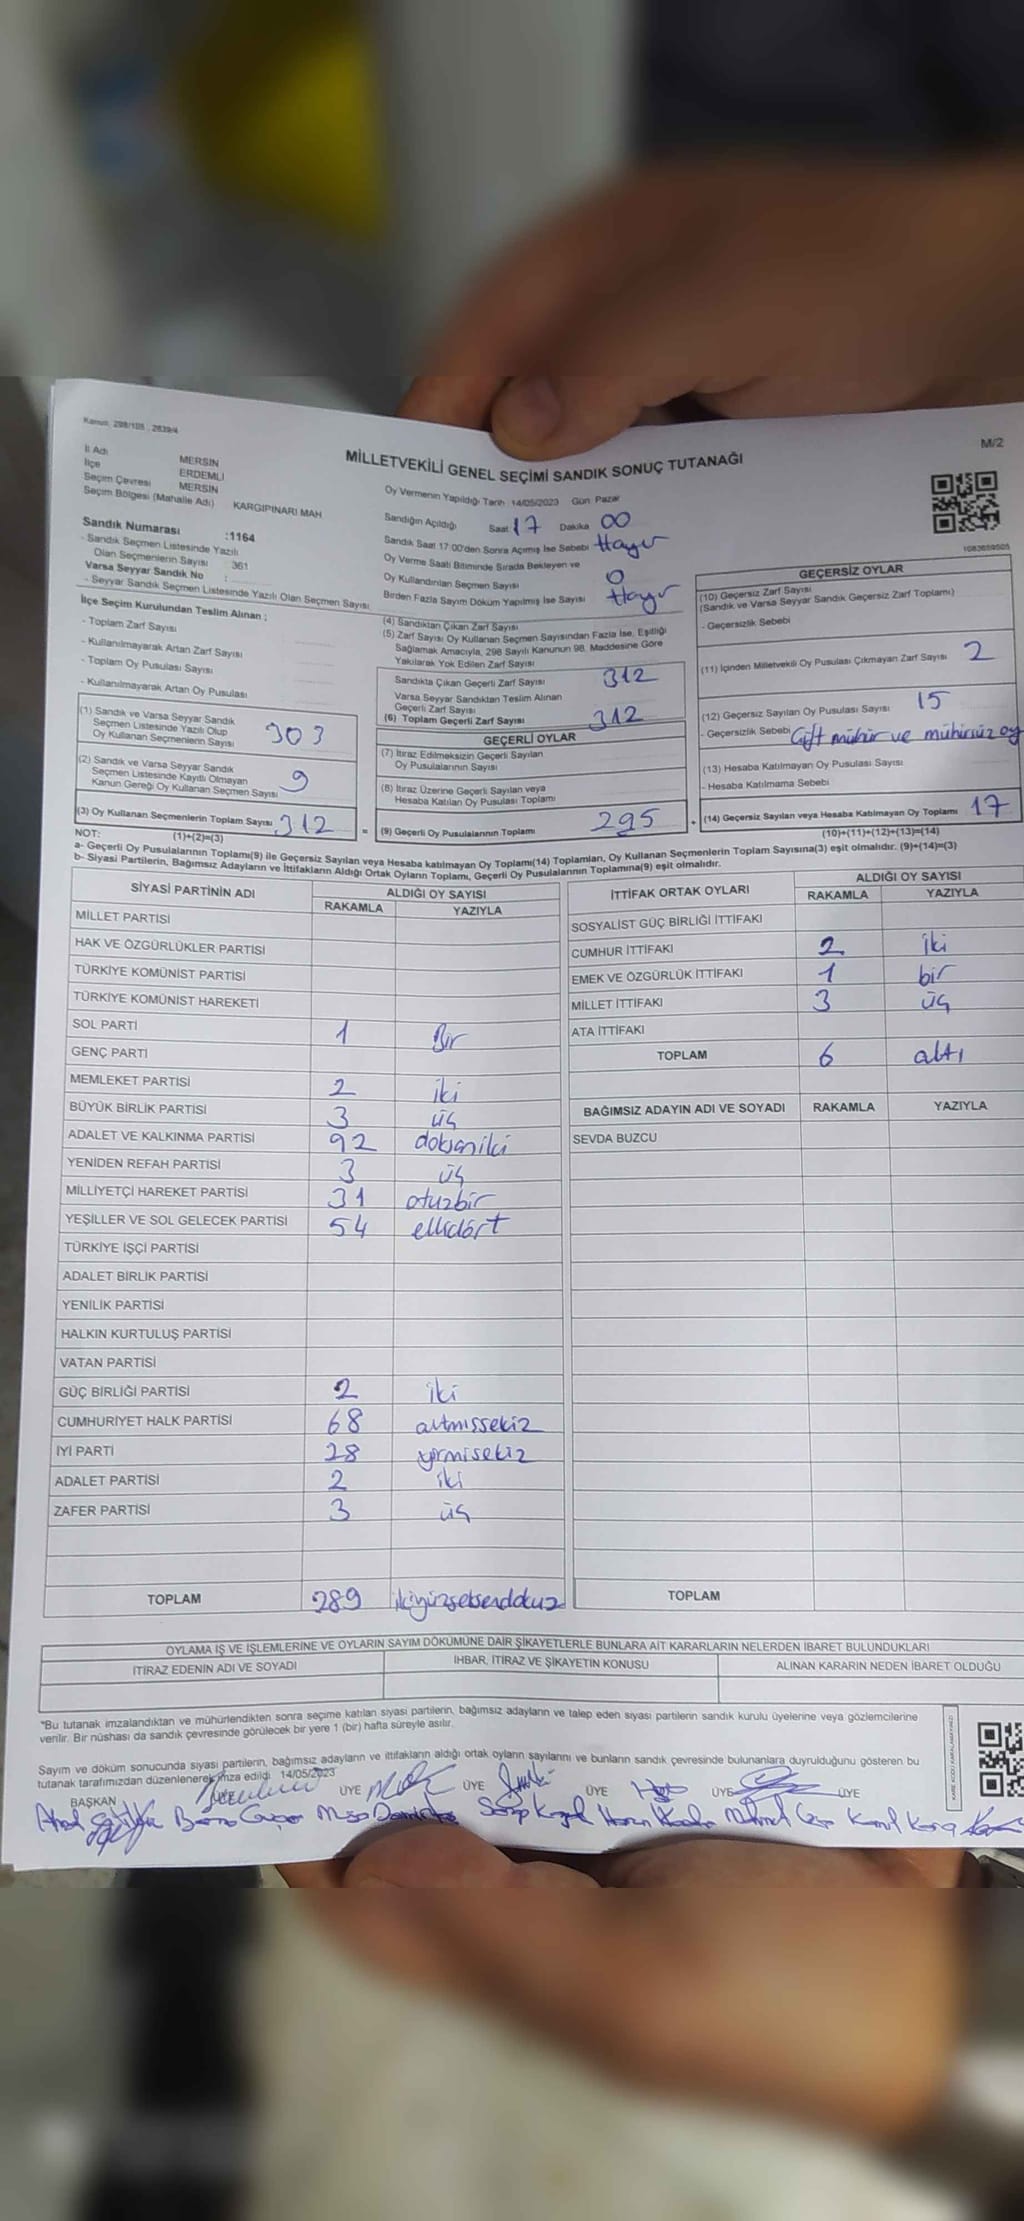 Kanun; 298/105 , 2839/4
M/2
MİLLETVEKİLİ GENEL SEÇİMİ SANDIK SONUÇ TUTANAĞI
İl Adı MERSİN
İlçe ERDEMLİ
Seçim Çevresi MERSİN
Seçim Bölgesi (Mahalle Adı) KARGIPINARI MAH
Sandık Numarası :1164
- Sandık Seçmen Listesinde Yazılı
Olan Seçmenlerin Sayısı : 361
Varsa Seyyar Sandık No :
- Seyyar Sandık Seçmen Listesinde Yazılı Olan Seçmen Sayısı
İlçe Seçim Kurulundan Teslim Alınan ;
- Toplam Zarf Sayısı
- Kullanılmayarak Artan Zarf Sayısı
- Toplam Oy Pusulası Sayısı
- Kullanılmayarak Artan Oy Pusulası
(1) Sandık ve Varsa Seyyar Sandık
Seçmen Listesinde Yazılı Olup
Oy Kullanan Seçmenlerin Sayısı 303
(2) Sandık ve Varsa Seyyar Sandık
Seçmen Listesinde Kayıtlı Olmayan
Kanun Gereği Oy Kullanan Seçmen Sayısı 9
(3) Oy Kullanan Seçmenlerin Toplam Sayısı 312
(1)+(2)=(3)
Oy Vermenin Yapıldığı Tarih 14/05/2023 Gün Pazar
Sandığın Açıldığı Saat 17 Dakika 00
Sandık Saat 17:00'den Sonra Açımış İse Sebebi Hayır
Oy Verme Saati Bitiminde Sırada Bekleyen ve
Oy Kullandırılan Seçmen Sayısı 0
Birden Fazla Sayım Döküm Yapılmış İse Sayısı Hayır
(4) Sandıktan Çıkan Zarf Sayısı
(5) Zarf Sayısı Oy Kullanan Seçmen Sayısından Fazla İse, Eşitliği
Sağlamak Amacıyla, 298 Sayılı Kanunun 98. Maddesine Göre
Yakılarak Yok Edilen Zarf Sayısı
Sandıkta Çıkan Geçerli Zarf Sayısı 312
Varsa Seyyar Sandıktan Teslim Alınan
Geçerli Zarf Sayısı
(6) Toplam Geçerli Zarf Sayısı 312
GEÇERLİ OYLAR
(7) İtiraz Edilmeksizin Geçerli Sayılan
Oy Pusulalarının Sayısı
(8) İtiraz Üzerine Geçerli Sayılan veya
Hesaba Katılan Oy Pusulası Toplamı
= (9) Geçerli Oy Pusulalarının Toplamı 295 +
1082659505
GEÇERSİZ OYLAR
(10) Geçersiz Zarf Sayısı
(Sandık ve Varsa Seyyar Sandık Geçersiz Zarf Toplamı)
- Geçersizlik Sebebi
(11) İçinden Milletvekili Oy Pusulası Çıkmayan Zarf Sayısı 2
(12) Geçersiz Sayılan Oy Pusulası Sayısı 15
- Geçersizlik Sebebi Çift mühür ve mühürsüz oy
(13) Hesaba Katılmayan Oy Pusulası Sayısı
- Hesaba Katılmama Sebebi
(14) Geçersiz Sayılan veya Hesaba Katılmayan Oy Toplamı 17
(10)+(11)+(12)+(13)=(14)
NOT:
a- Geçerli Oy Pusulalarının Toplamı(9) ile Geçersiz Sayılan veya Hesaba katılmayan Oy Toplamı(14) Toplamları, Oy Kullanan Seçmenlerin Toplam Sayısına(3) eşit olmalıdır. (9)+(14)=(3)
b- Siyasi Partilerin, Bağımsız Adayların ve İttifakların Aldığı Ortak Oyların Toplamı, Geçerli Oy Pusulalarının Toplamına(9) eşit olmalıdır.
SİYASİ PARTİNİN ADI ALDIĞI OY SAYISI
RAKAMLA YAZIYLA
MİLLET PARTİSİ
HAK VE ÖZGÜRLÜKLER PARTİSİ
TÜRKİYE KOMÜNİST PARTİSİ
TÜRKİYE KOMÜNİST HAREKETİ
SOL PARTİ 1 Bir
GENÇ PARTİ
MEMLEKET PARTİSİ 2 iki
BÜYÜK BİRLİK PARTİSİ 3 üç
ADALET VE KALKINMA PARTİSİ 92 doksaniki
YENİDEN REFAH PARTİSİ 3 üç
MİLLİYETÇİ HAREKET PARTİSİ 31 otuzbir
YEŞİLLER VE SOL GELECEK PARTİSİ 54 ellidört
TÜRKİYE İŞÇİ PARTİSİ
ADALET BİRLİK PARTİSİ
YENİLİK PARTİSİ
HALKIN KURTULUŞ PARTİSİ
VATAN PARTİSİ
GÜÇ BİRLİĞİ PARTİSİ 2 iki
CUMHURİYET HALK PARTİSİ 68 altmışsekiz
İYİ PARTİ 28 yirmisekiz
ADALET PARTİSİ 2 iki
ZAFER PARTİSİ 3 üç
TOPLAM 289 ikiyüzseksendokuz
İTTİFAK ORTAK OYLARI ALDIĞI OY SAYISI
RAKAMLA YAZIYLA
SOSYALİST GÜÇ BİRLİĞİ İTTİFAKI
CUMHUR İTTİFAKI 2 iki
EMEK VE ÖZGÜRLÜK İTTİFAKI 1 bir
MİLLET İTTİFAKI 3 üç
ATA İTTİFAKI
TOPLAM 6 altı
BAĞIMSIZ ADAYIN ADI VE SOYADI RAKAMLA YAZIYLA
SEVDA BUZCU
TOPLAM
OYLAMA İŞ VE İŞLEMLERİNE VE OYLARIN SAYIM DÖKÜMÜNE DAİR ŞİKAYETLERLE BUNLARA AİT KARARLARIN NELERDEN İBARET BULUNDUKLARI
İTİRAZ EDENİN ADI VE SOYADI İHBAR, İTİRAZ VE ŞİKAYETİN KONUSU ALINAN KARARIN NEDEN İBARET OLDUĞU
*Bu tutanak imzalandıktan ve mühürlendikten sonra seçime katılan siyasi partilerin, bağımsız adayların ve talep eden siyasi partilerin sandık kurulu üyelerine veya gözlemcilerine
verilir. Bir nüshası da sandık çevresinde görülecek bir yere 1 (bir) hafta süreyle asılır.
Sayım ve döküm sonucunda siyasi partilerin, bağımsız adayların ve ittifakların aldığı ortak oyların sayılarını ve bunların sandık çevresinde bulunanlara duyrulduğunu gösteren bu
tutanak tarafımızdan düzenlenerek imza edildi. 14/05/2023
BAŞKAN ÜYE ÜYE ÜYE ÜYE ÜYE
KARE KODU KARALAMAYINIZ!